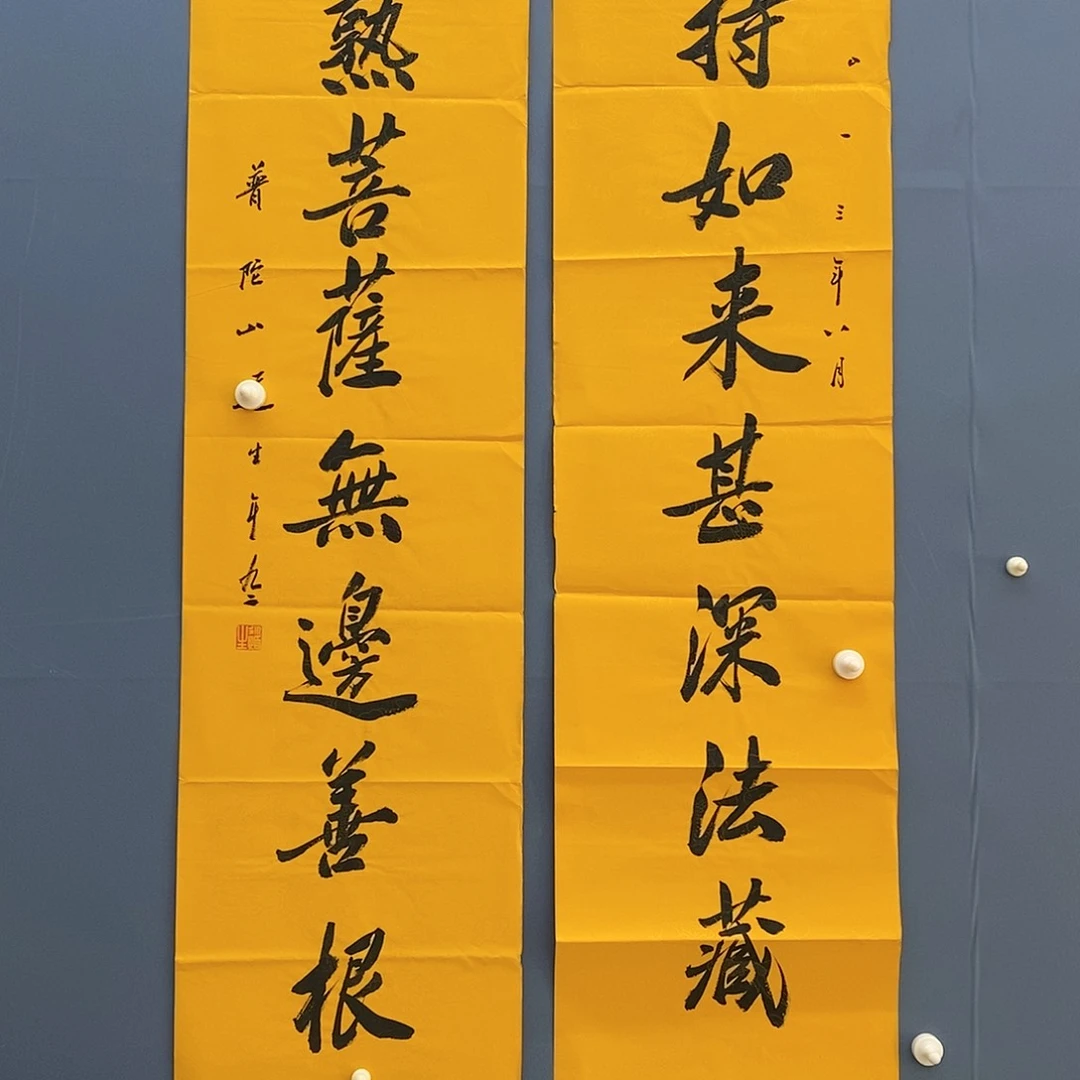 持如来甚深法藏
一三年八月
熟菩薩無邊善根
普陀山
生年九二